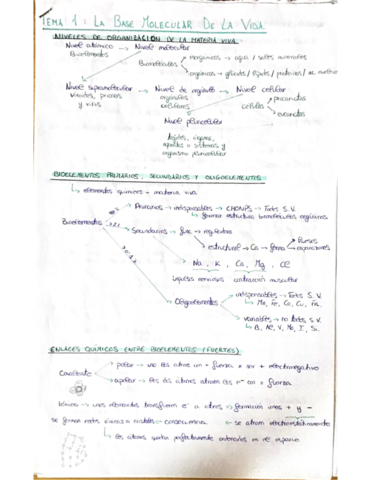 TEMA 1: LA BASE MOLECULAR DE LA VIDA
NIVELES DE ORGANIZACIÓN DE LA MATERIA VIVA
Nivel atómico → Nivel molecular
Bioelementos
Biomoléculas
inorgánicas → agua / sales minerales
orgánicas → glúcidos / lípidos / proteínas / ac. nucleico
Nivel supramolecular → Nivel de orgánulo → Nivel celular
virus
orgánulos celulares
células
procariotas
eucariotas
Nivel pluricelular
tejidos, órganos,
aparatos o sistemas y
organismo pluricelular
BIOELEMENTOS PRIMARIOS, SECUNDARIOS Y OLIGOELEMENTOS
↳ elementos químicos → materia viva
Bioelementos
Primarios → indispensables → CHONPS → Todos S.V.
↳ formar estructura biomoléculas orgánicas
Secundarios → función → reguladora
estructural → Ca → forma
huesos
caparazones
Na, K, Ca, Mg, Cl
impulso nervioso
contracción muscular
Oligoelementos
indispensables → Todos S.V.
↳ Mn, Fe, Co, Cu, Zn.
variables → no todos S.V.
↳ B, Al, V, Mo, I, Si.
ENLACES QUÍMICOS ENTRE BIOELEMENTOS (FUERTES)
Covalente
polar → uno los atrae con + fuerza x ser + electronegativo
apolar → los dos átomos atraen los e⁻ con = fuerza
Iónico → unos elementos transfieren e⁻ a otros → formación iones + y −
se forman redes iónicas o cristales ← consecuencia ← se atraen electrostáticamente
↳ los átomos quedan perfectamente ordenados en el espacio